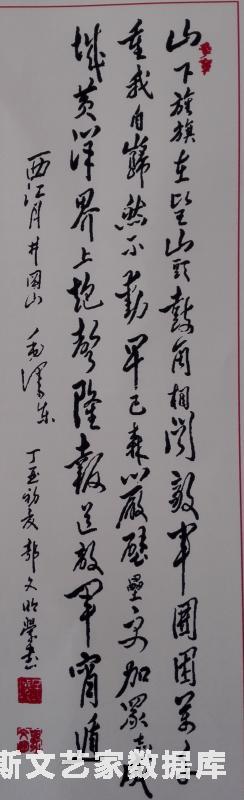 山下旌旗在望山头鼓角相闻敌军围困万千
重我自巋然不动早已森严壁垒更加众志成
城黄洋界上炮声隆报道敌军宵遁
西江月井冈山 毛泽东
丁亥初友郭文明學書
斯文艺家数据库